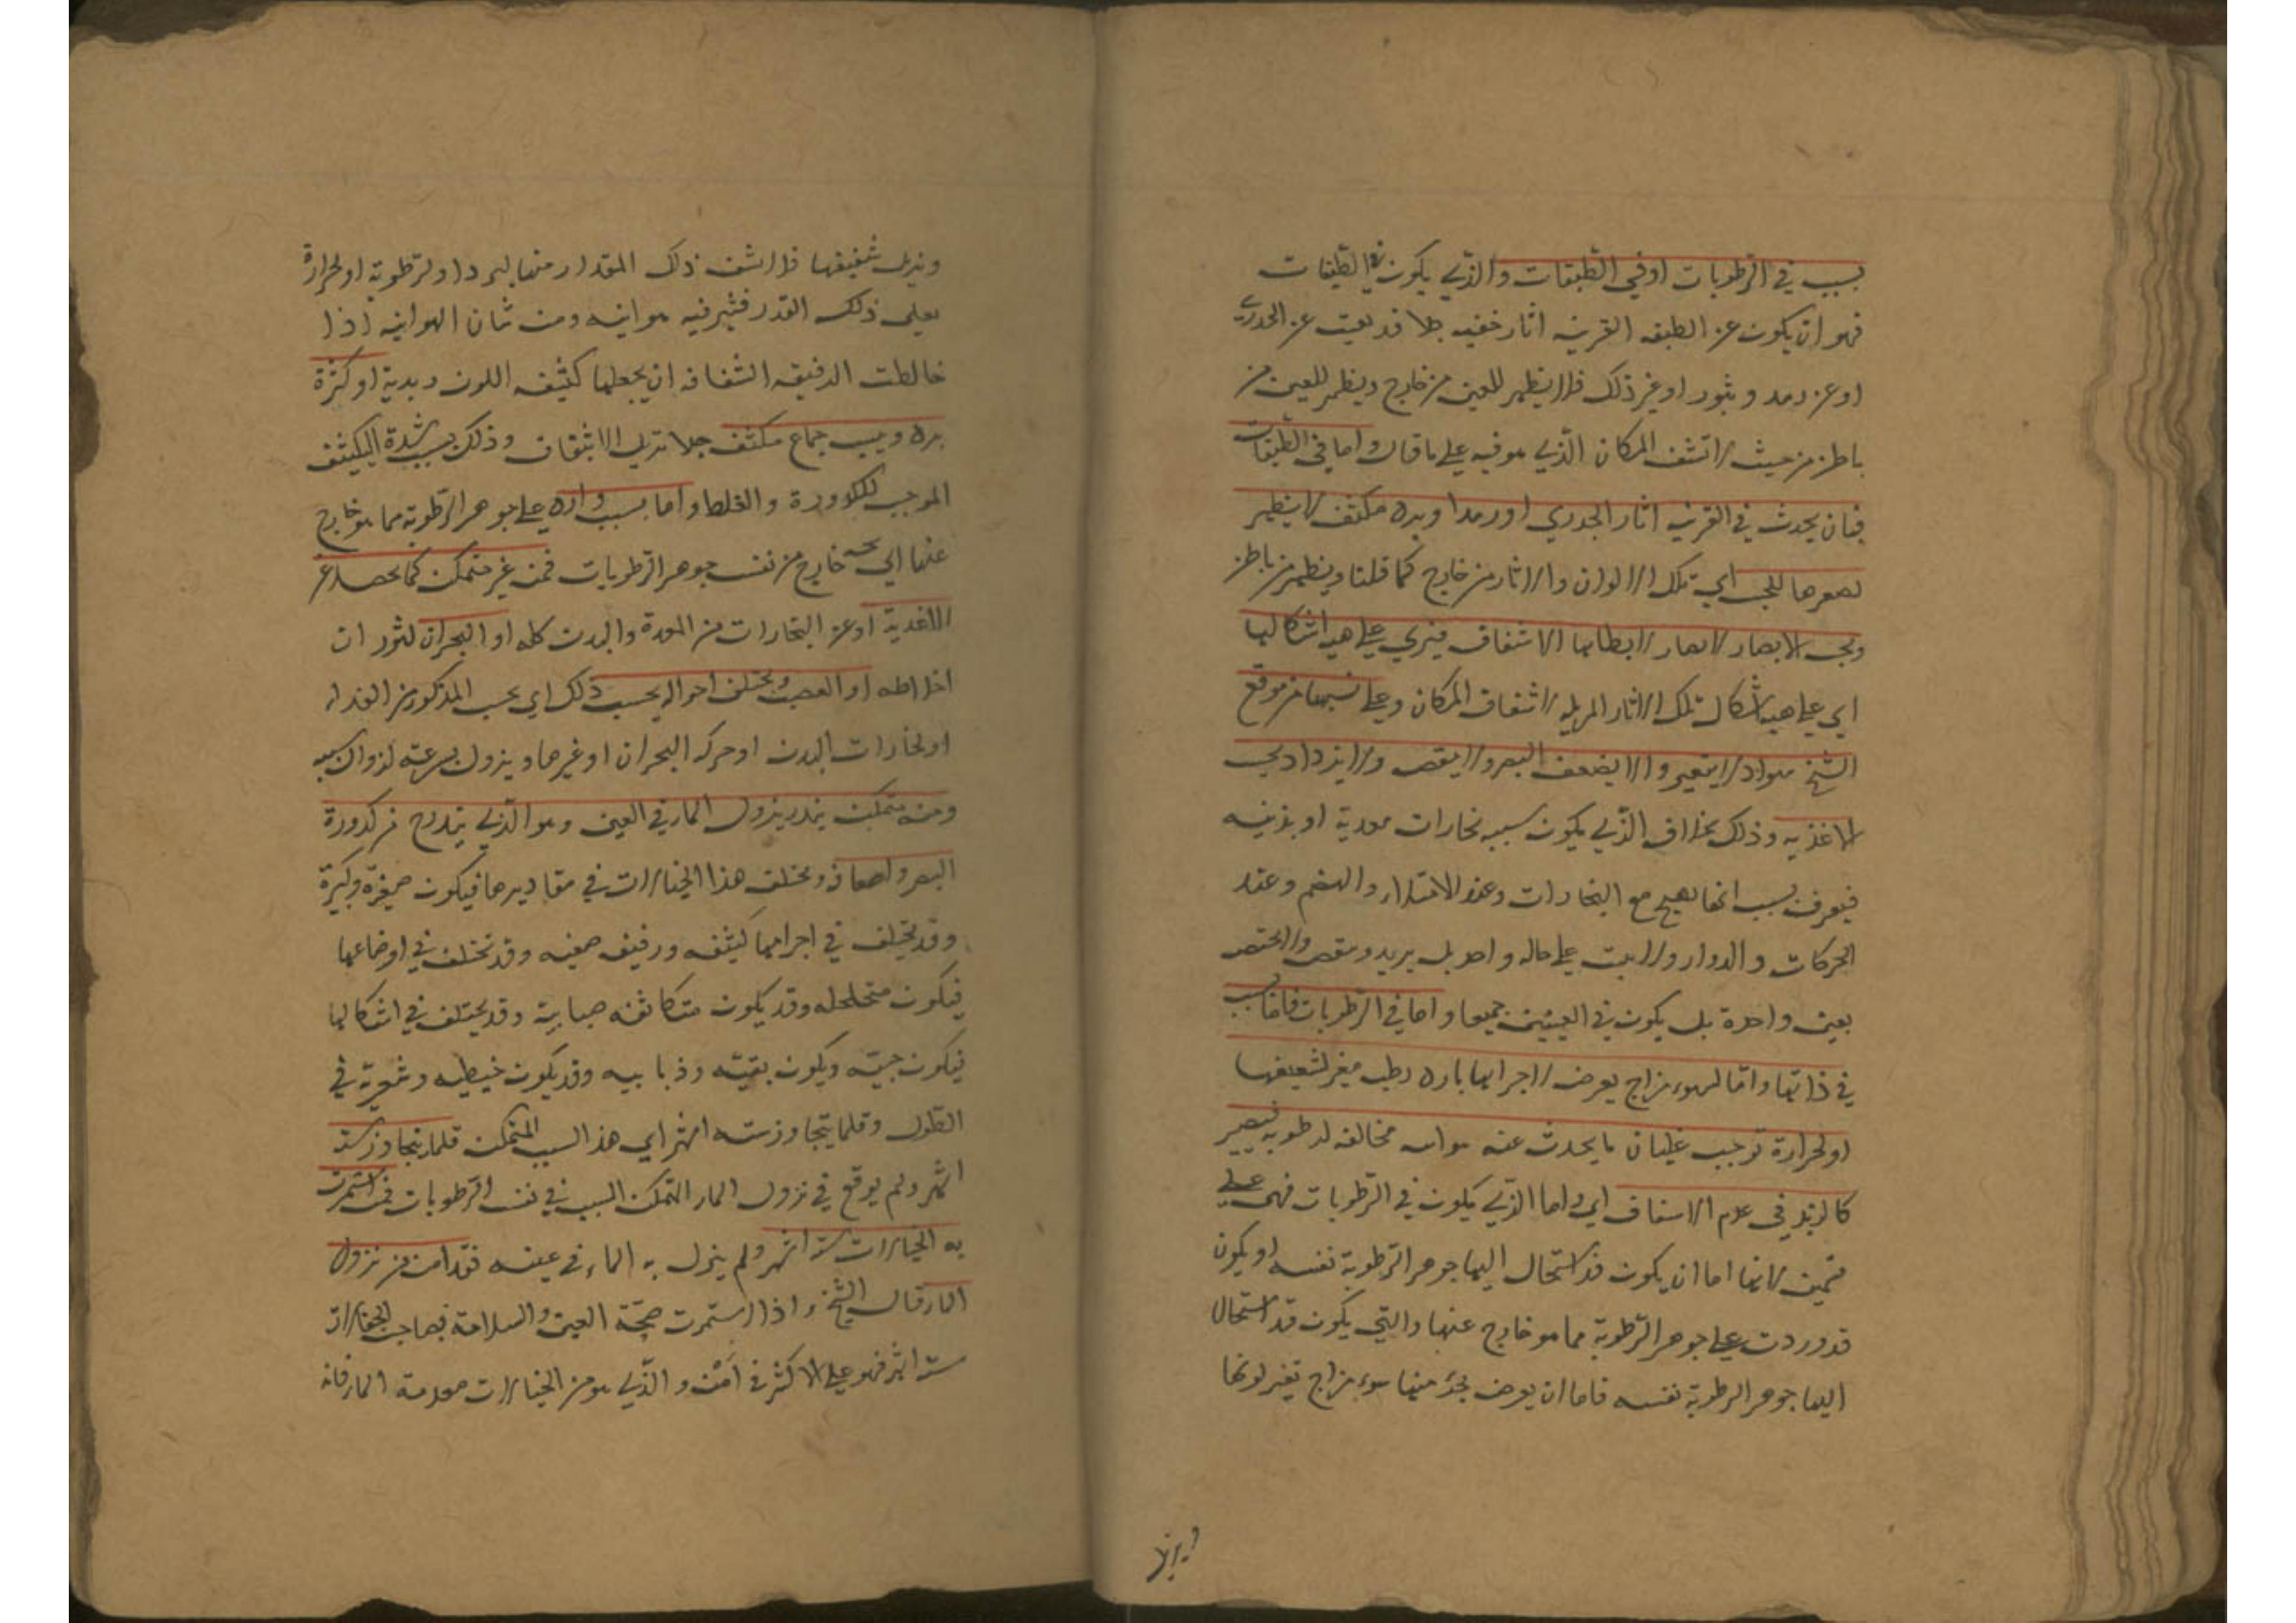 بسبب في الرطوبات او في الطبقات والذي يكون في الطبقات
فهو ان يكون عن الطبقه القرنيه اثار خفيه جدا قد بقيت عن الجدري
او عن رمد و بثور او غير ذلك فلا يظهر للعين من خارج و يظهر للعين من
باطن من حيث لا تشف المكان الذي هو فيه على ما قال و اما في الطبقات
فبان يحدث في القرنيه اثار الجدري او رمد او برده مكثف لا يظهر
لصغرها للحس اي تلك الالوان و الاثار من خارج كما قلنا و يظهر من باطن
و يحس الابصار لابطالها الاشفاف فيرى على هيه اشكالها
اي على هيه اشكال تلك الاثار المزيله لاشفاف المكان و على نسبها من موقع
الشبح سواد لا يتغير و لا يضعف البصر و لا ينقص و لا يزداد بحسب
الاغذيه و ذلك بخلاف الذي يكون سببه بخارات معدية او بدنيه
فيعرف بسبب انها تهيج مع البخارات و عند الامتلاء و الهضم و عند
الحركات و الدوار و لا يثبت على حاله واحدة بل يزيد و ينقص و لا يختص
بعين واحدة بل يكون في العينين جميعا و اما في الرطوبات فاما بسبب
في ذاتها و اما لسوء مزاج يعرض لاجزائها بارد رطب مغير لشفيفها
او لحرارة توجب غليان ما يحدث عنه هوائيه مخالفه لرطوبه فيصير
كالزبد في عدم الاشفاف اي و اما الذي يكون في الرطوبات فهي على
قسمين لانها اما ان يكون قد استحال اليها جوهر الرطوبة نفسه او يكون
قد وردت على جوهر الرطوبة مما هو خارج عنها و التي يكون قد استحال
اليها جوهر الرطوبة نفسه فاما ان يعرض لجزء منها سوء مزاج تغير لونها
و يزيل شفيفها فلا يشف ذلك المقدار منها لبرد او لرطوبة او لحرارة
يغلي ذلك القدر فيثير فيه هوائيه و من شان الهوائيه اذا
خالطت الرقيقه الشفافه ان يجعلها كثيفه اللون زبدية او كثرة
برد و يبس جماع مكثف جدا تزيل الاشفاف و ذلك بسبب شدة التكثيف
الموجب للكدورة و الغلظ و اما بسبب وارد على جوهر الرطوبة مما هو خارج
عنها اي يجيه خارج من نفس جوهر الرطوبات فمن غير متمكن كما يحصل عن
الاغذية او عن البخارات من المعدة و البدن كله او البحران لثوران
اخلاطه او الغضب و يختلف احواله بحسب ذلك اي بحسب المذكور من الغذاء
او بخارات البدن او حركه البحران او غيرها و يزول بسرعته لزوال سببه
و منه متمكن ينذر بنزول الماء في العين و هو الذي يتدرج من كدورة
البصر و اضعافه و يختلف هذا الخيالات في مقاديرها فيكون صغيرة و كبيرة
و قد يختلف في اجرامها كثيفه و رقيقه و قد تختلف في اوضاعها
فيكون متخلخله و قد يكون متكاثفه ضبابية و قد يختلف في اشكالها
فيكون حبيه و يكون بقيه و ذبابيه و قد يكون خيطيه و شعرية في
الطول و قلما يتجاوز سته اشهر اي هذا السبب المتمكن قلما يتجاوز سته
اشهر و لم يوقع في نزول الماء المتمكن السبب في نفس الرطوبات فمن استمرت
به الخيالات سته اشهر و لم ينزل به الماء في عينه فقد امن من نزول
الماء قال الشيخ و اذا استمرت صحة العين و السلامة بصاحب الخيالات
سته اشهر فهو على الاكثر في امن و الذي هو من الخيالات مقدمة الماء فانه